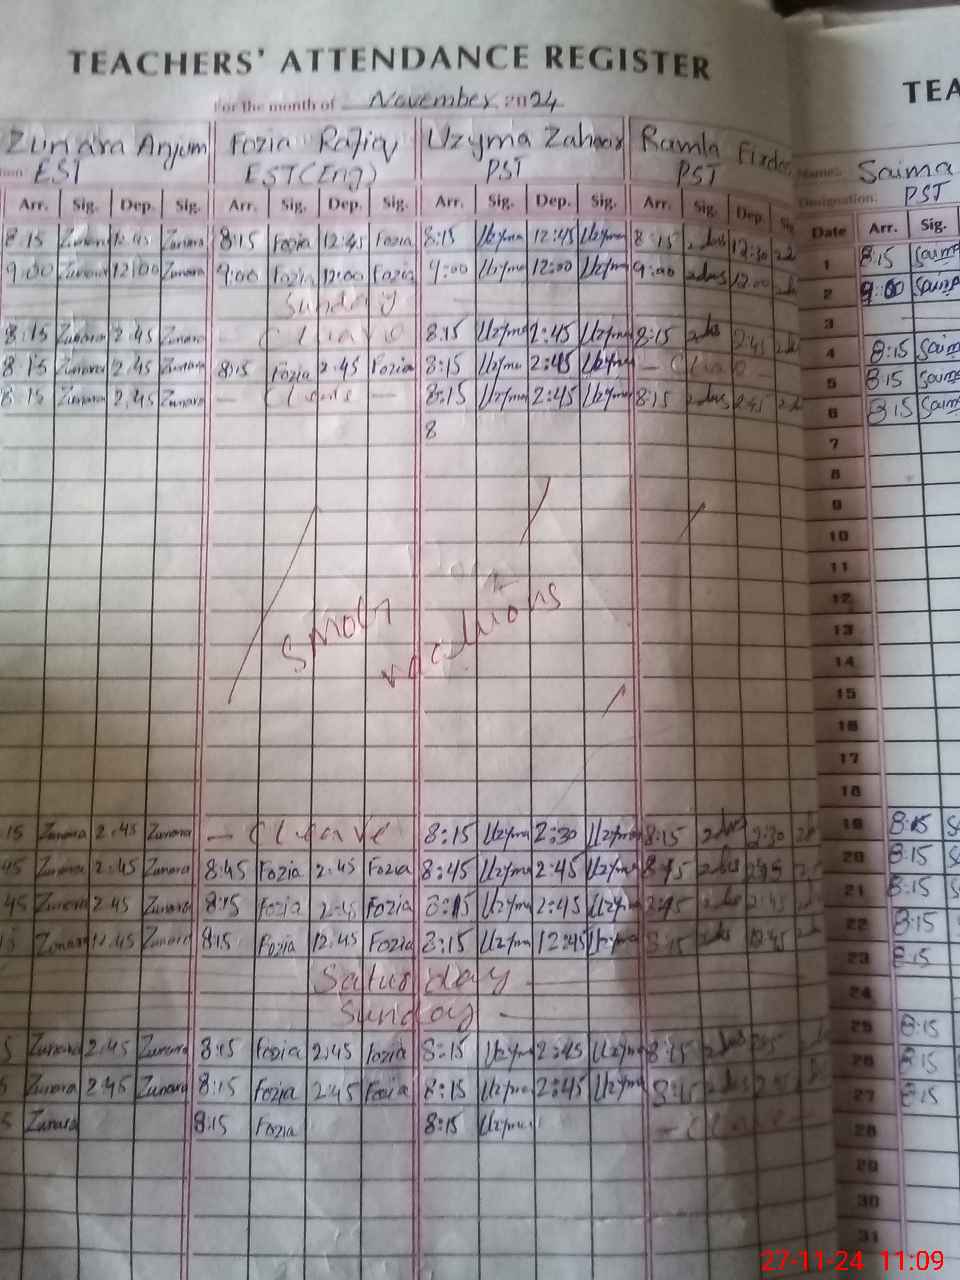 TEACHERS' ATTENDANCE REGISTER
TEA
For the month of November 2024
Zunara Anjum Fozia Rafiq Uzyma Zahoor Ramla Saima
EST EST (Eng) PST PST Designation: PST
Arr. Sig. Dep. Sig. Arr. Sig. Dep. Sig. Arr. Sig. Dep. Sig. Arr. Sig. Dep. Date Arr. Sig.
8:15 Zunara 12:45 Zunara 8:15 Fozia 12:45 Fozia 8:15 Uzyma 12:45 Uzyma 8:15 12:30 1 8:15
9:00 Zunara 12:00 Zunara 9:00 Fozia 12:00 Fozia 9:00 Uzyma 12:00 Uzyma 9:00 12:00 2 9:00
Sunday 3
8:15 Zunara 2:45 Zunara - C leave 8:15 Uzyma 2:45 Uzyma 8:15 2:45 4 8:15
8:15 Zunara 2:45 Zunara 8:15 Fozia 2:45 Fozia 8:15 Uzyma 2:45 Uzyma - C leave - 5 8:15
8:15 Zunara 2:45 Zunara - C leave - 8:15 Uzyma 2:45 Uzyma 8:15 2:45 6 8:15
8 7
8
9
10
11
12
smog vacations 13
14
15
16
17
18
15 Zunara 2:45 Zunara - C leave 8:15 Uzyma 2:30 Uzyma 8:15 2:30 19 8:15
45 Zunara 2:45 Zunara 8:45 Fozia 2:45 Fozia 8:45 Uzyma 2:45 Uzyma 8:45 2:45 20 8:15
45 Zunara 2:45 Zunara 8:15 Fozia 2:45 Fozia 8:15 Uzyma 2:45 Uzyma 2:45 21 8:15
Zunara 12:45 Zunara 8:15 Fozia 12:45 Fozia 8:15 Uzyma 12:45 Uzyma 8:15 12:45 22 8:15
Saturday 23 8:15
Sunday 24
5 Zunara 2:45 Zunara 8:15 Fozia 2:45 Fozia 8:15 Uzyma 2:45 Uzyma 8:15 25 8:15
5 Zunara 2:45 Zunara 8:15 Fozia 2:45 Fozia 8:15 Uzyma 2:45 Uzyma 8:15 26 8:15
5 Zunara 8:15 Fozia 8:15 Uzyma - C leave 27 8:15
28
29
30
31
27-11-24 11:09